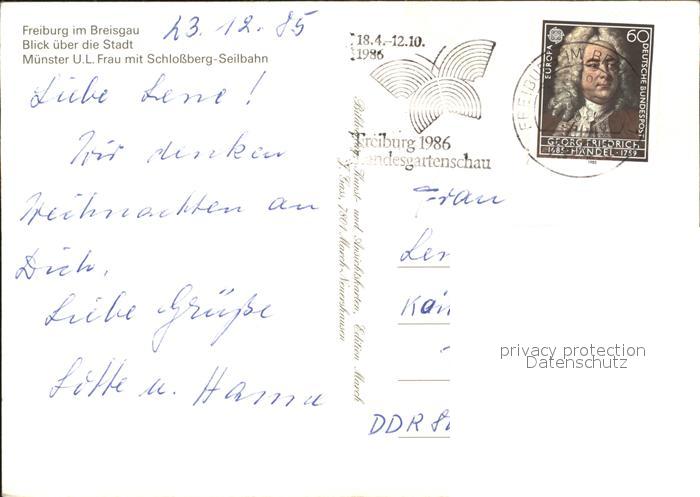 Freiburg im Breisgau
Blick über die Stadt
Münster U.L. Frau mit Schloßberg-Seilbahn
23.12.85
Liebe Lene!
Wir denken
Weihnachten an
Dich.
Liebe Grüße
Lotte u. Hanna
Kunst- und Ansichtskarten, Edition March
7801 March-Neuershausen
18.4.-12.10.
1986
Freiburg 1986
Landesgartenschau
EUROPA
60
DEUTSCHE BUNDESPOST
GEORG FRIEDRICH
1685 · HÄNDEL · 1759
1985
Frau
DDR
privacy protection
Datenschutz